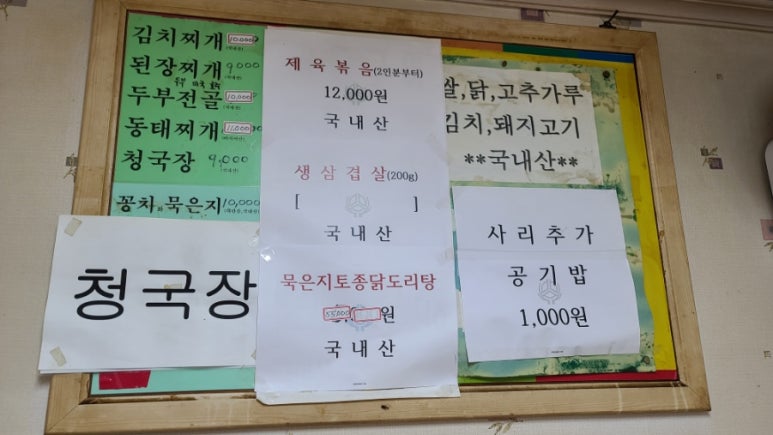 김치찌개 10,000
된장찌개 9,000
두부전골 10,000
동태찌개 11,000
청국장 9,000
꽁치와 묵은지 10,000
청국장
제육볶음(2인분부터)
12,000원
국내산
생삼겹살(200g)
[ ]
국내산
묵은지토종닭도리탕
55,000 원
국내산
쌀,닭,고추가루
김치,돼지고기
**국내산**
사리추가
공기밥
1,000원